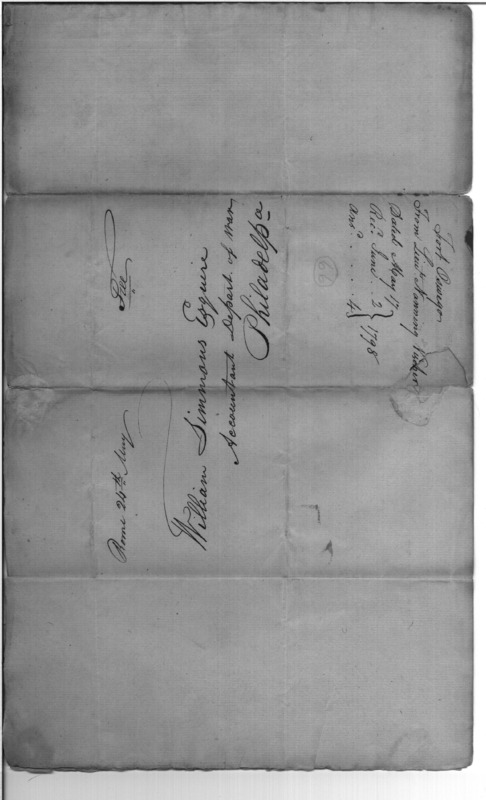 Rome 24th May
Free
William Simmons Esquire
Accountant Depart. of War
Philadelpa
62
Fort Oswego
From Lieut Nanning
Dated May 17
Recd June 2 } 1798
Ansd .... 4